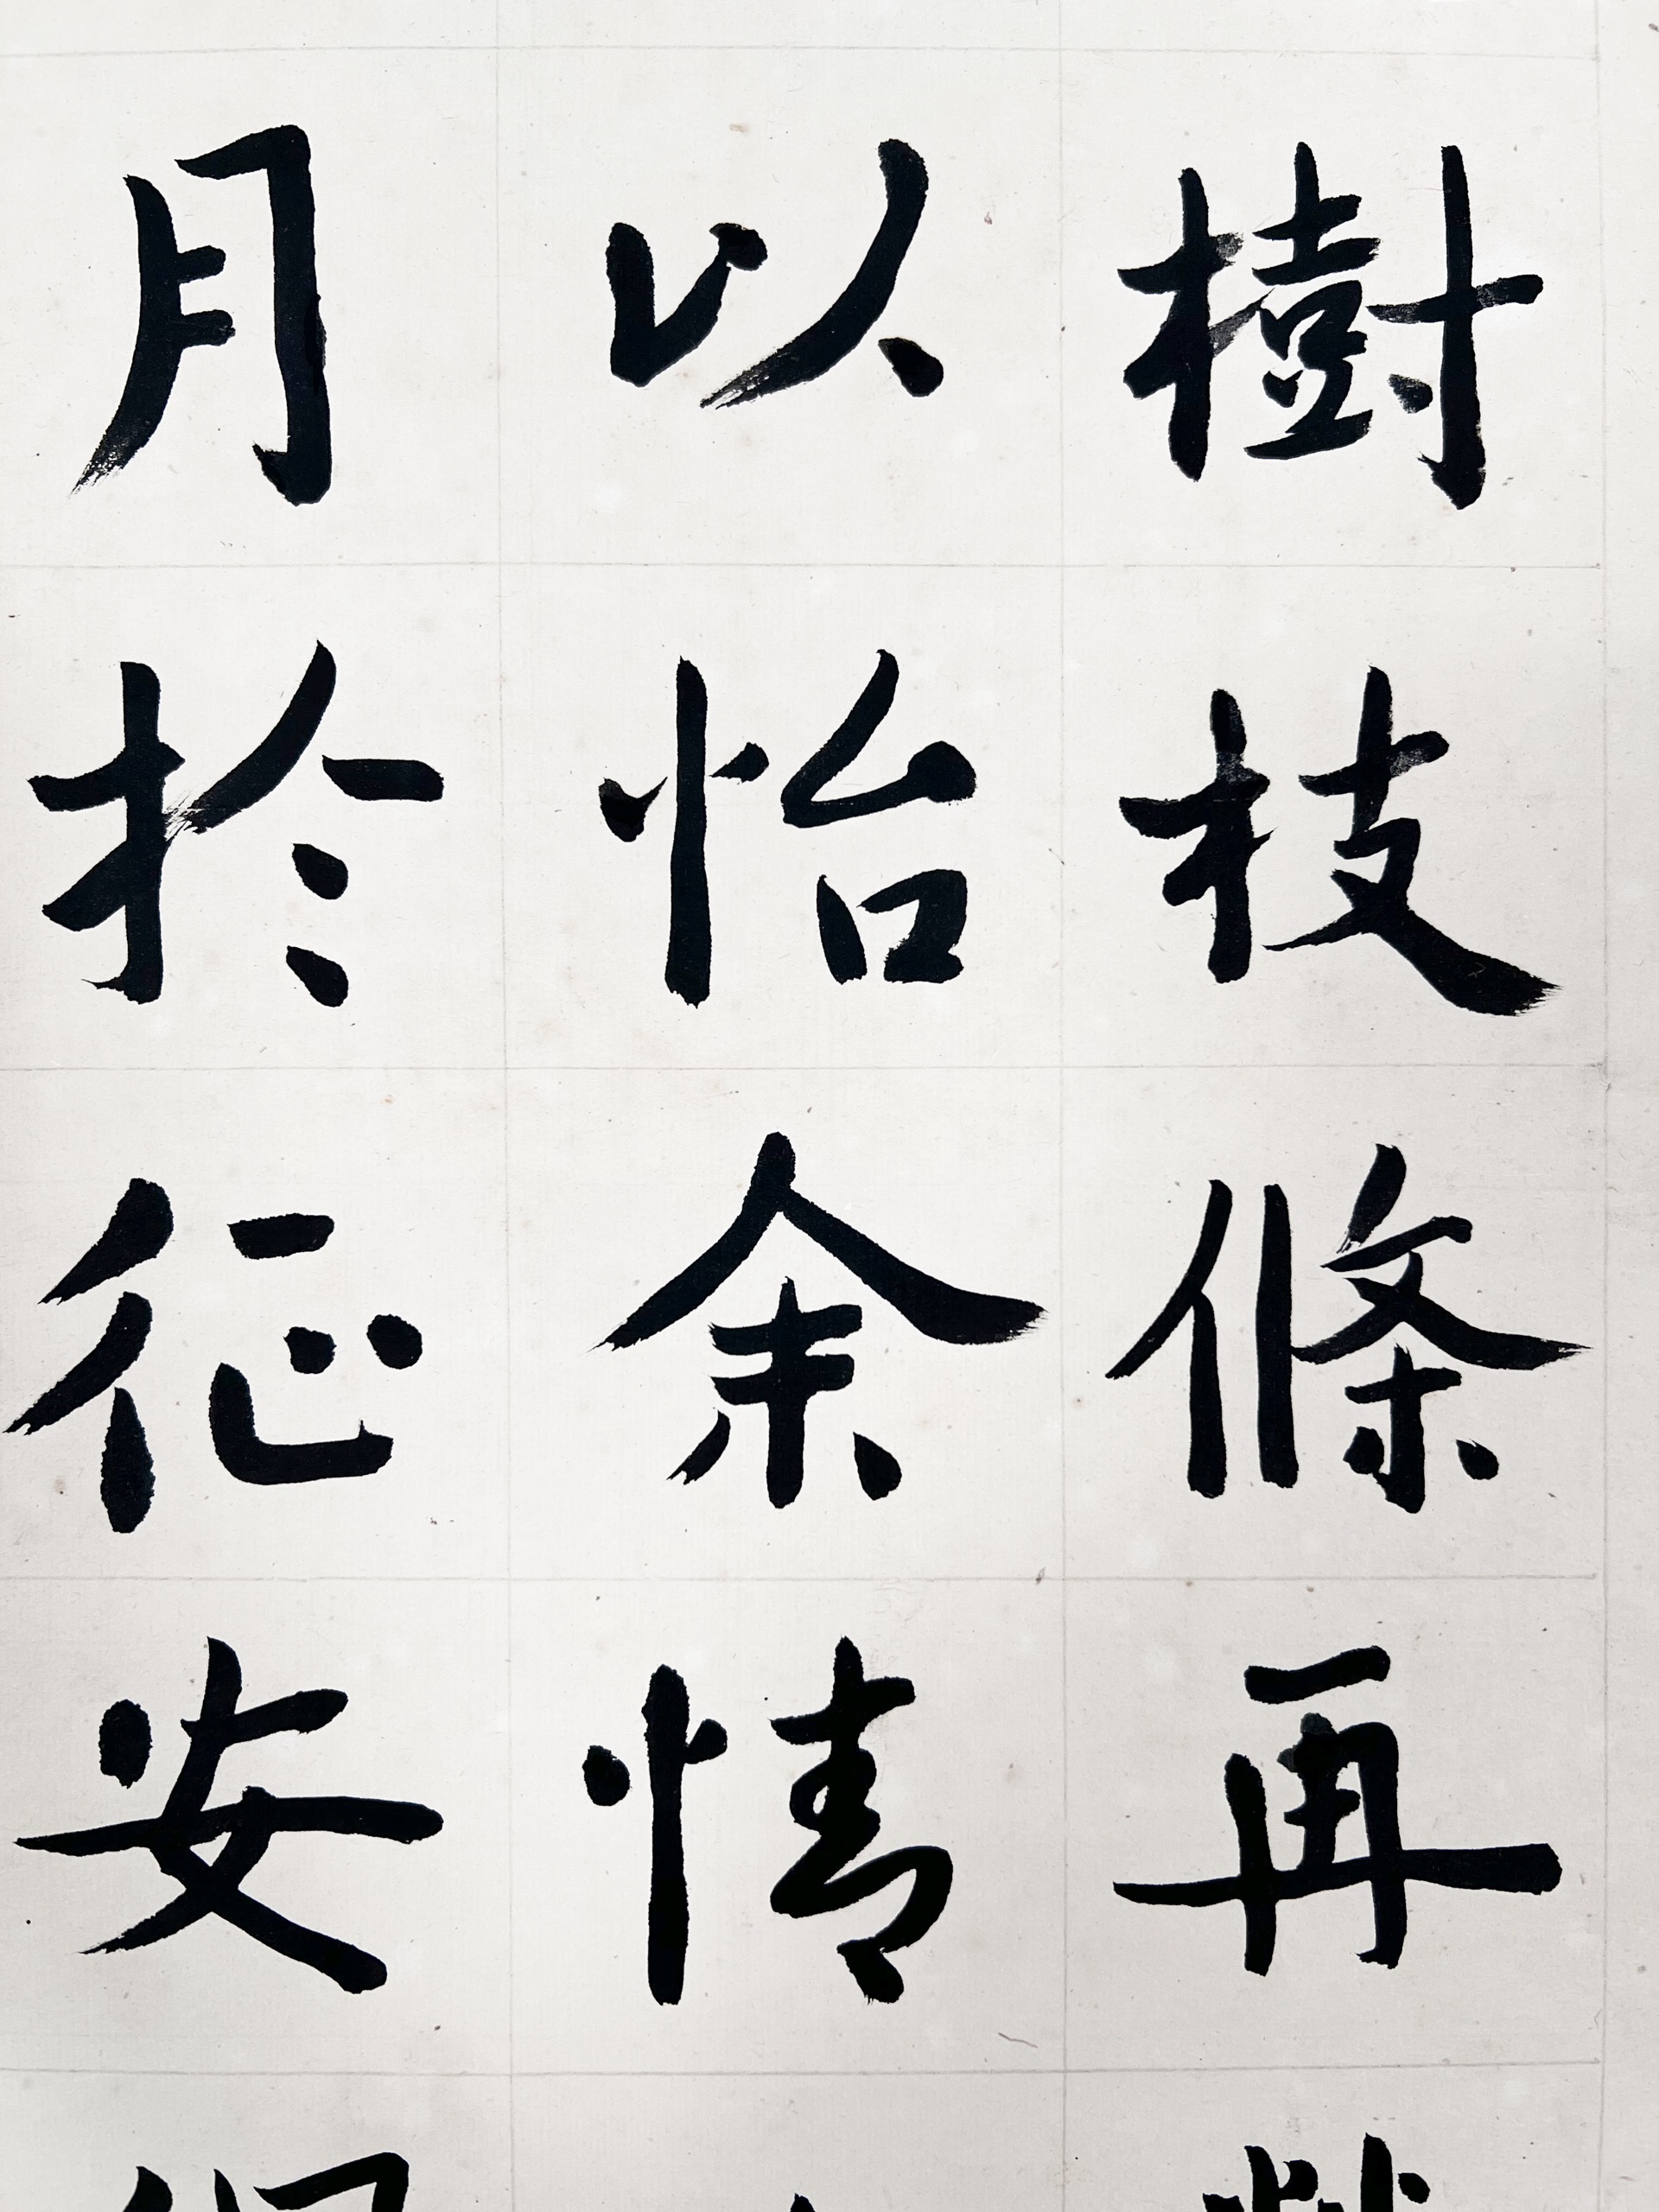 樹枝條再
以怡余情
月於征安